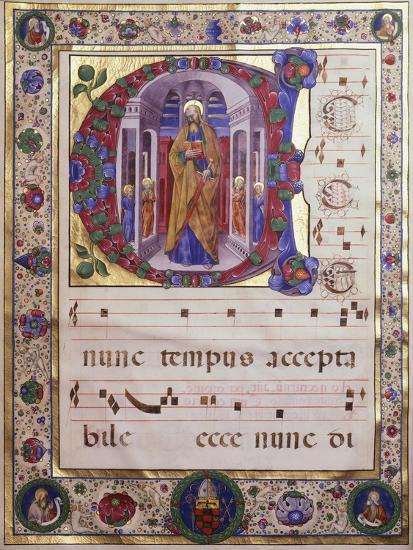 E
c
c
e
nunc tempus accepta
bile ecce nunc di